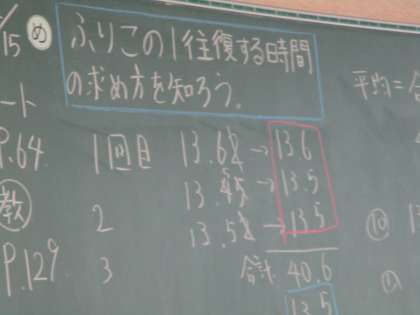 /15
め
ふりこの1往復する時間
の求め方を知ろう。
平均=
ート
P.64
1回目 13.62 → 13.6
教
13.45 → 13.5
2
13.52 → 13.5
P.129.
3
合計 40.6
13.5
⑩